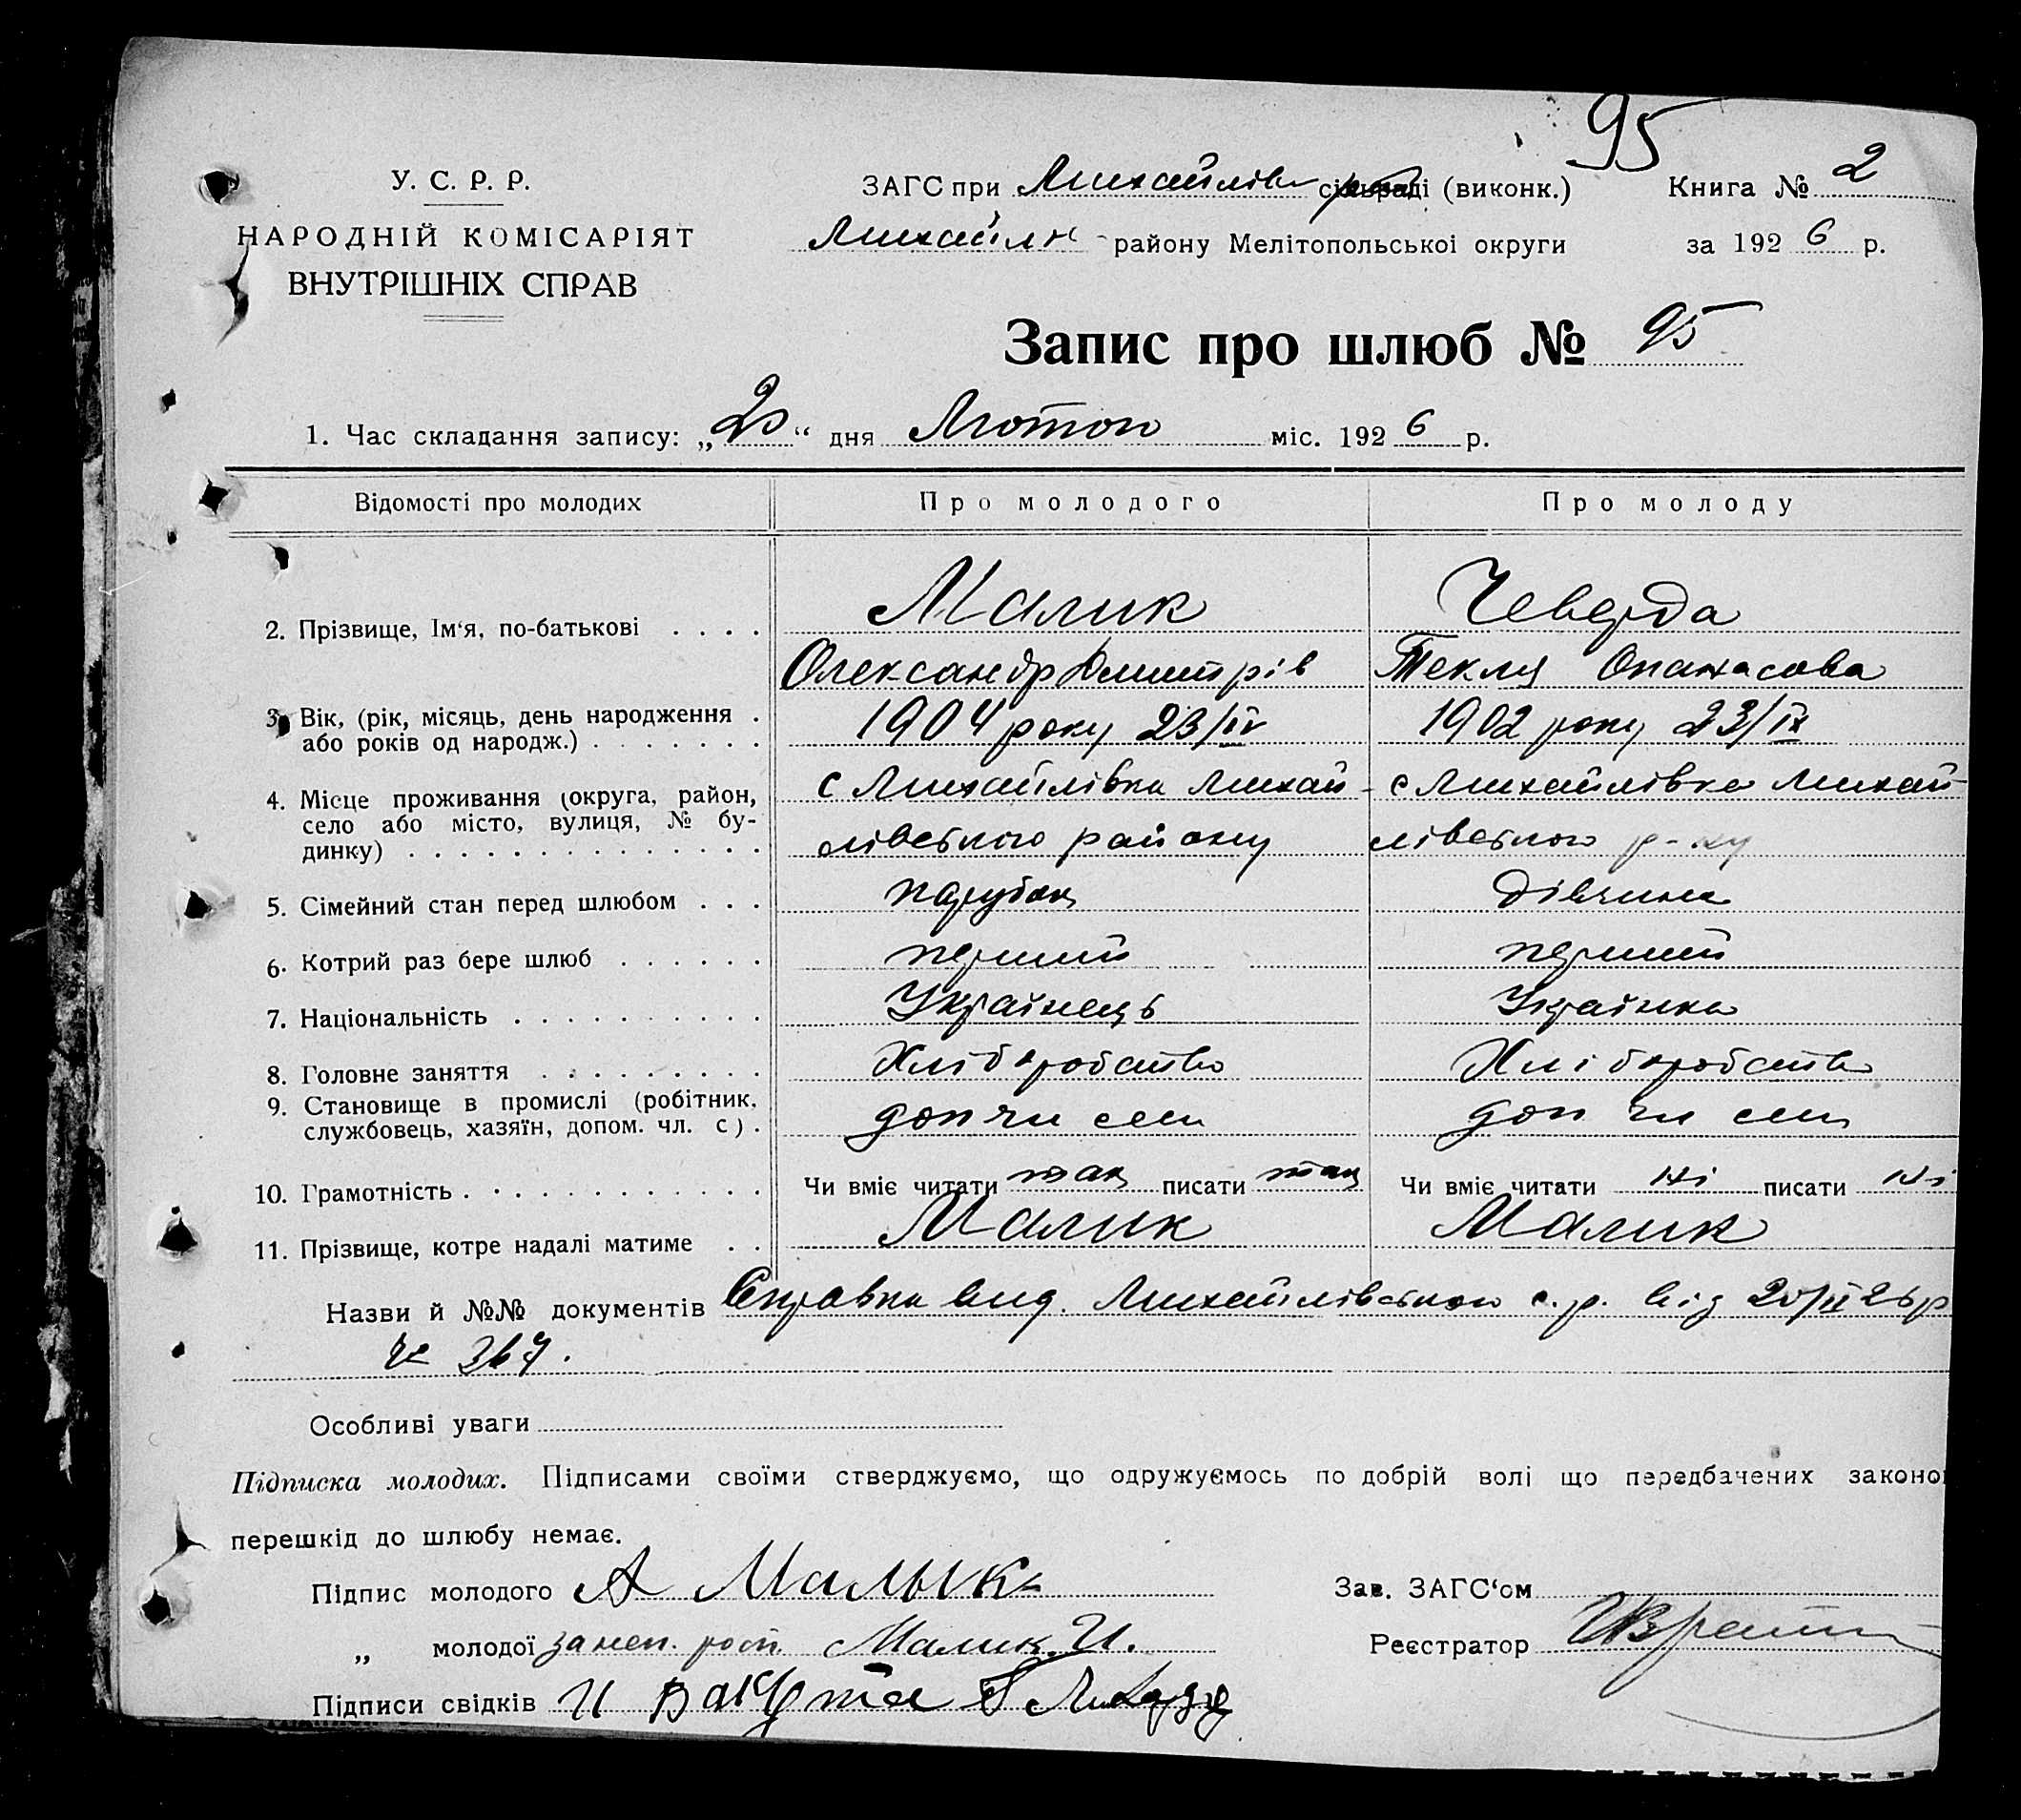 95
У. С. Р. Р.
НАРОДНІЙ КОМІСАРІЯТ
ВНУТРІШНІХ СПРАВ
ЗАГС при Михайлів сільраді (виконк.) Книга № 2
Михайл району Мелітопольськоі округи за 1926 р.
Запис про шлюб № 95
1. Час складання запису: „20“ дня Лютого міс. 1926 р.
Відомості про молодих Про молодого Про молоду
2. Прізвище, Ім‘я, по-батькові . . . . Малик Чеверда
Олександр Дмитрів Текля Опанасова
3. Вік, (рік, місяць, день народження . 1904 року 23/IV 1902 року 23/IX
або років од народж.) . . . . . . .
4. Місце проживання (округа, район, с Михайлівка Михай- с Михайлівка Михай-
село або місто, вулиця, № бу-
динку) . . . . . . . . . . . . . . лівського району лівського р-ну
5. Сімейний стан перед шлюбом . . . парубок дівчина
6. Котрий раз бере шлюб . . . . . . перший перший
7. Національність . . . . . . . . . . Українець Українка
8. Головне заняття . . . . . . . . . Хліборобство Хліборобство
9. Становище в промислі (робітник,
службовець, хазяїн, допом. чл. с) . доп чл сем доп чл сем
10. Грамотність . . . . . . . . . . . . Чи вміє читати так писати так Чи вміє читати ні писати ні
11. Прізвище, котре надалі матиме . . Малик Малик
Назви й №№ документів Справка вид. Михайлівською с.р. від 20/II 26 р
№ 367.
Особливі уваги
Підписка молодих. Підписами своїми стверджуємо, що одружуємось по добрій волі що передбачених законо
перешкід до шлюбу немає.
Підпис молодого А Малык
Зав. ЗАГС‘ом
„ молодої за неп. росп. Малик И.
Реєстратор
Підписи свідків И Вакута